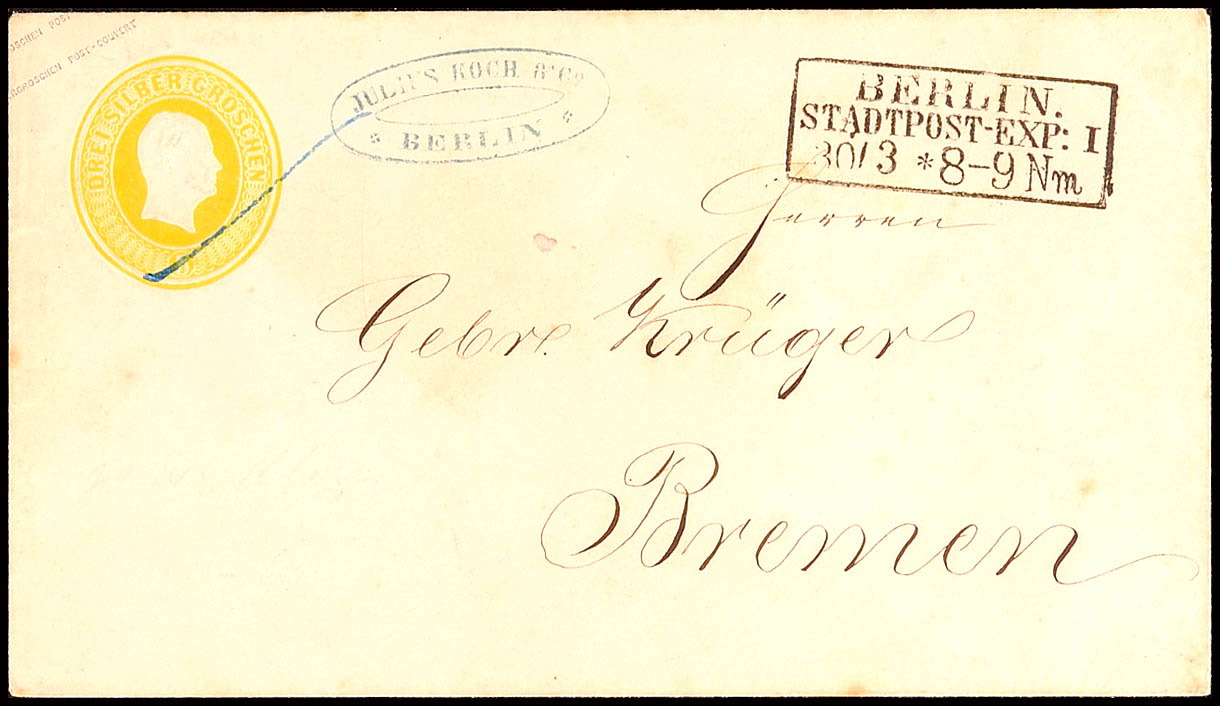 OSCHEN POST
RGROSCHEN POST-COUVERT
DREI SILBER GROSCHEN
3
JULIUS KOCH & Co
* BERLIN *
BERLIN.
STADTPOST-EXP: I
30/3 * 8-9 Nm
Herren
Gebr. Krüger
Bremen